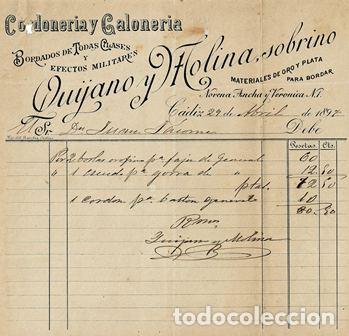 Cordoneria y Galoneria
BORDADOS DE TODAS CLASES
Y
EFECTOS MILITARES
Quijano y Molina, sobrino
MATERIALES DE ORO Y PLATA
PARA BORDAR.
Novena, Ancha y Veronica Nº 7.
Cádiz 29 de Abril de 1897
Sr. Dn Juan Debe
Pesetas. Cts.
Por 2 borlas oro fino pª fajin de General 60
" 1 escudo pª gorra de " 12,50
ptas. 72,50
1 Cordon pª Baston General 10
Quijano y Molina
todocoleccion